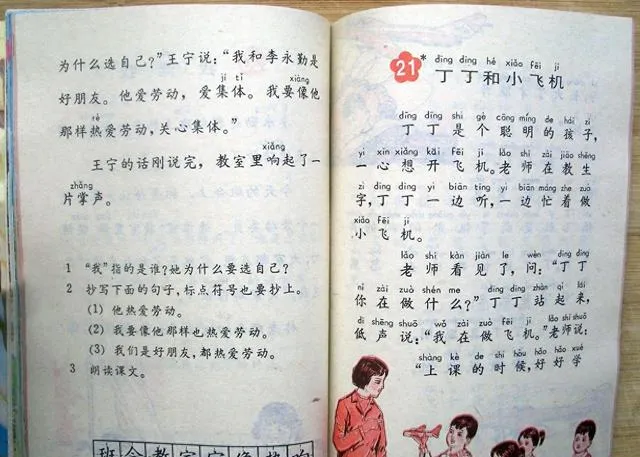 为什么选自己?”王宁说:“我和李永勤是
jí tǐ xiàng
好朋友。他爱劳动,爱集体。我要像他
rè
那样热爱劳动,关心集体。”
xiǎng
王宁的话刚说完,教室里响起了一
zhǎng
片掌声。
1 “我”指的是谁?她为什么要选自己?
2 抄写下面的句子,标点符号也要抄上。
(1) 他热爱劳动。
(2) 我要像他那样也热爱劳动。
(3) 我们是好朋友,都热爱劳动。
3 朗读课文。
班会教室完像热响
dīng dīng hé xiǎo fēi jī
21* 丁丁和小飞机
dīng dīng shì gè cōng míng de hái zi
丁丁是个聪明的孩子,
yì xīn xiǎng kāi fēi jī lǎo shī zài jiāo shēng
一心想开飞机。老师在教生
zì dīng dīng yì biān tīng yì biān máng zhe zuò
字,丁丁一边听,一边忙着做
xiǎo fēi jī
小飞机。
lǎo shī kàn jiàn le wèn dīng dīng
老师看见了,问:“丁丁
nǐ zài zuò shén me dīng dīng zhàn qǐ lái
你在做什么?”丁丁站起来,
dī shēng shuō wǒ zài zuò fēi jī lǎo shī shuō
低声说:“我在做飞机。”老师说:
shàng kè de shí hòu hǎo hǎo xué
“上课的时候,好好学